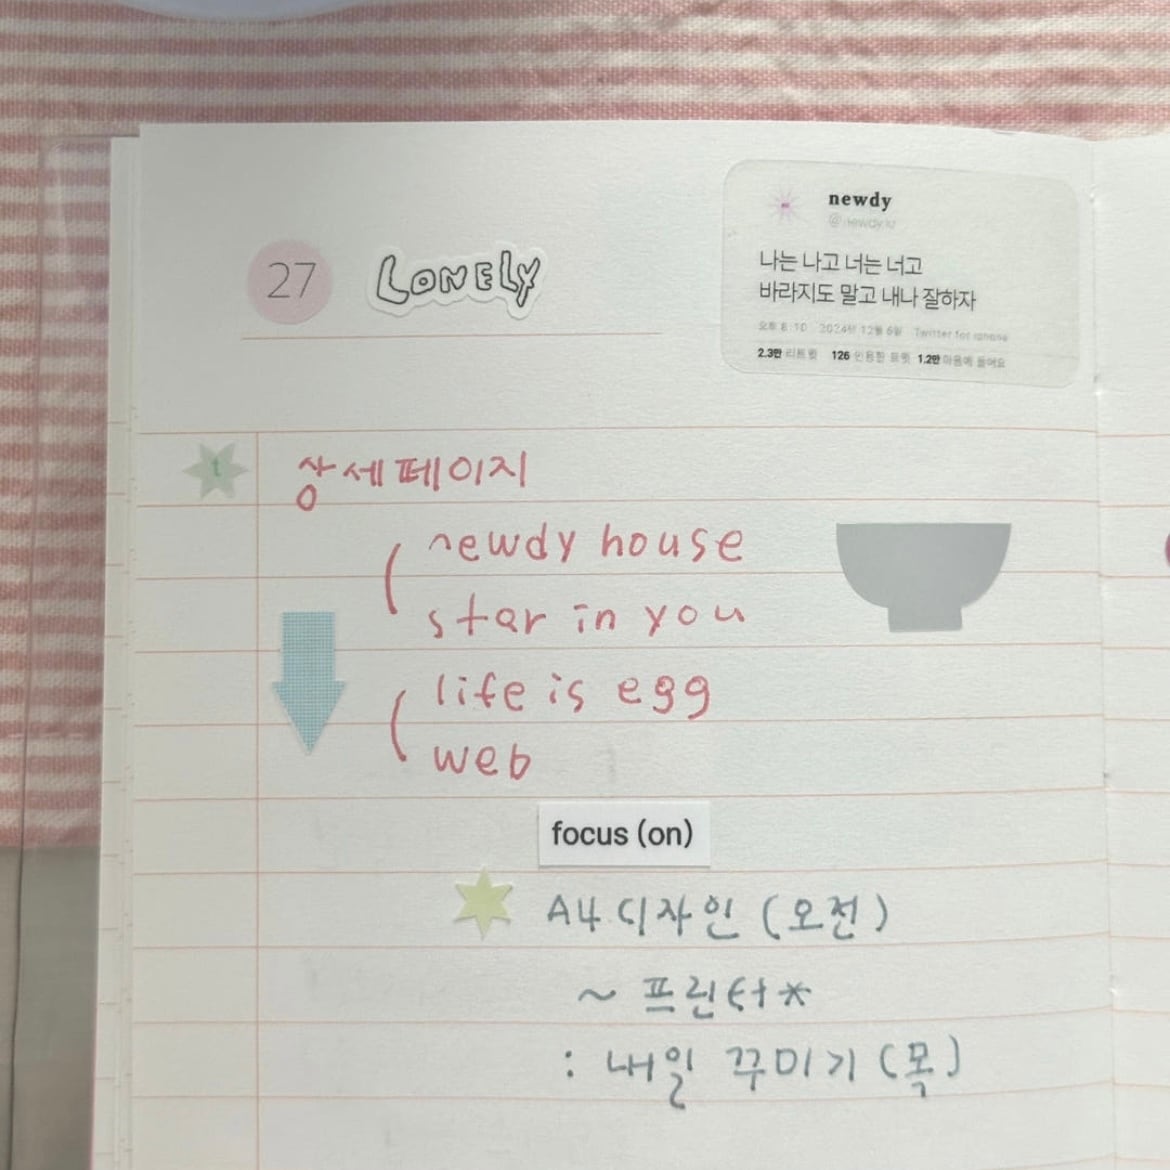 27 LONELY
newdy
@newdy.kr
나는 나고 너는 너고
바라지도 말고 내나 잘하자
오후 8:10 2024년 12월 6일 Twitter for iphone
2.3만 리트윗 126 인용한 트윗 1.2만 마음에 들어요
t 상세페이지
newdy house
star in you
life is egg
web
focus (on)
A4 디자인 (오전)
~ 프린터*
: 내일 꾸미기 (목)